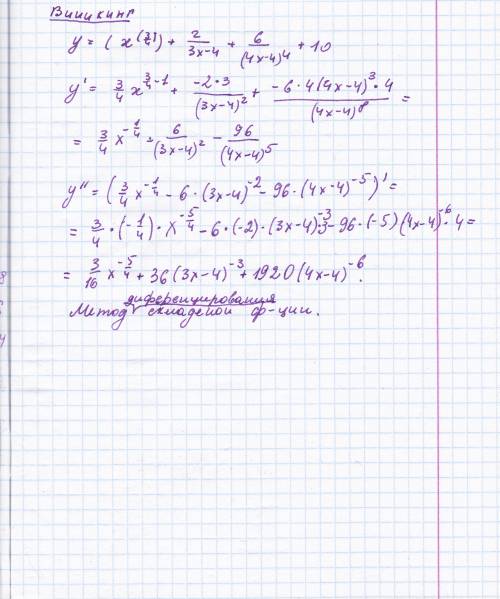 Виикинг
y = ( x^(3/4)) + 2/(3x-4) + 6/(4x-4)^4 + 10
y' = 3/4 x^(3/4 - 1) + (-2·3)/(3x-4)^2 + (-6·4(4x-4)^3·4)/(4x-4)^8 =
= 3/4 x^(-1/4) - 6/(3x-4)^2 - 96/(4x-4)^5
y'' = (3/4 x^(-1/4) - 6·(3x-4)^-2 - 96·(4x-4)^-5)' =
= 3/4 · (-1/4) · x^(-5/4) - 6·(-2)·(3x-4)^-3·3 - 96·(-5)(4x-4)^-6·4 =
= 3/16 x^(-5/4) + 36(3x-4)^-3 + 1920(4x-4)^-6.
диференцирования
Метод складеной ф-ции.